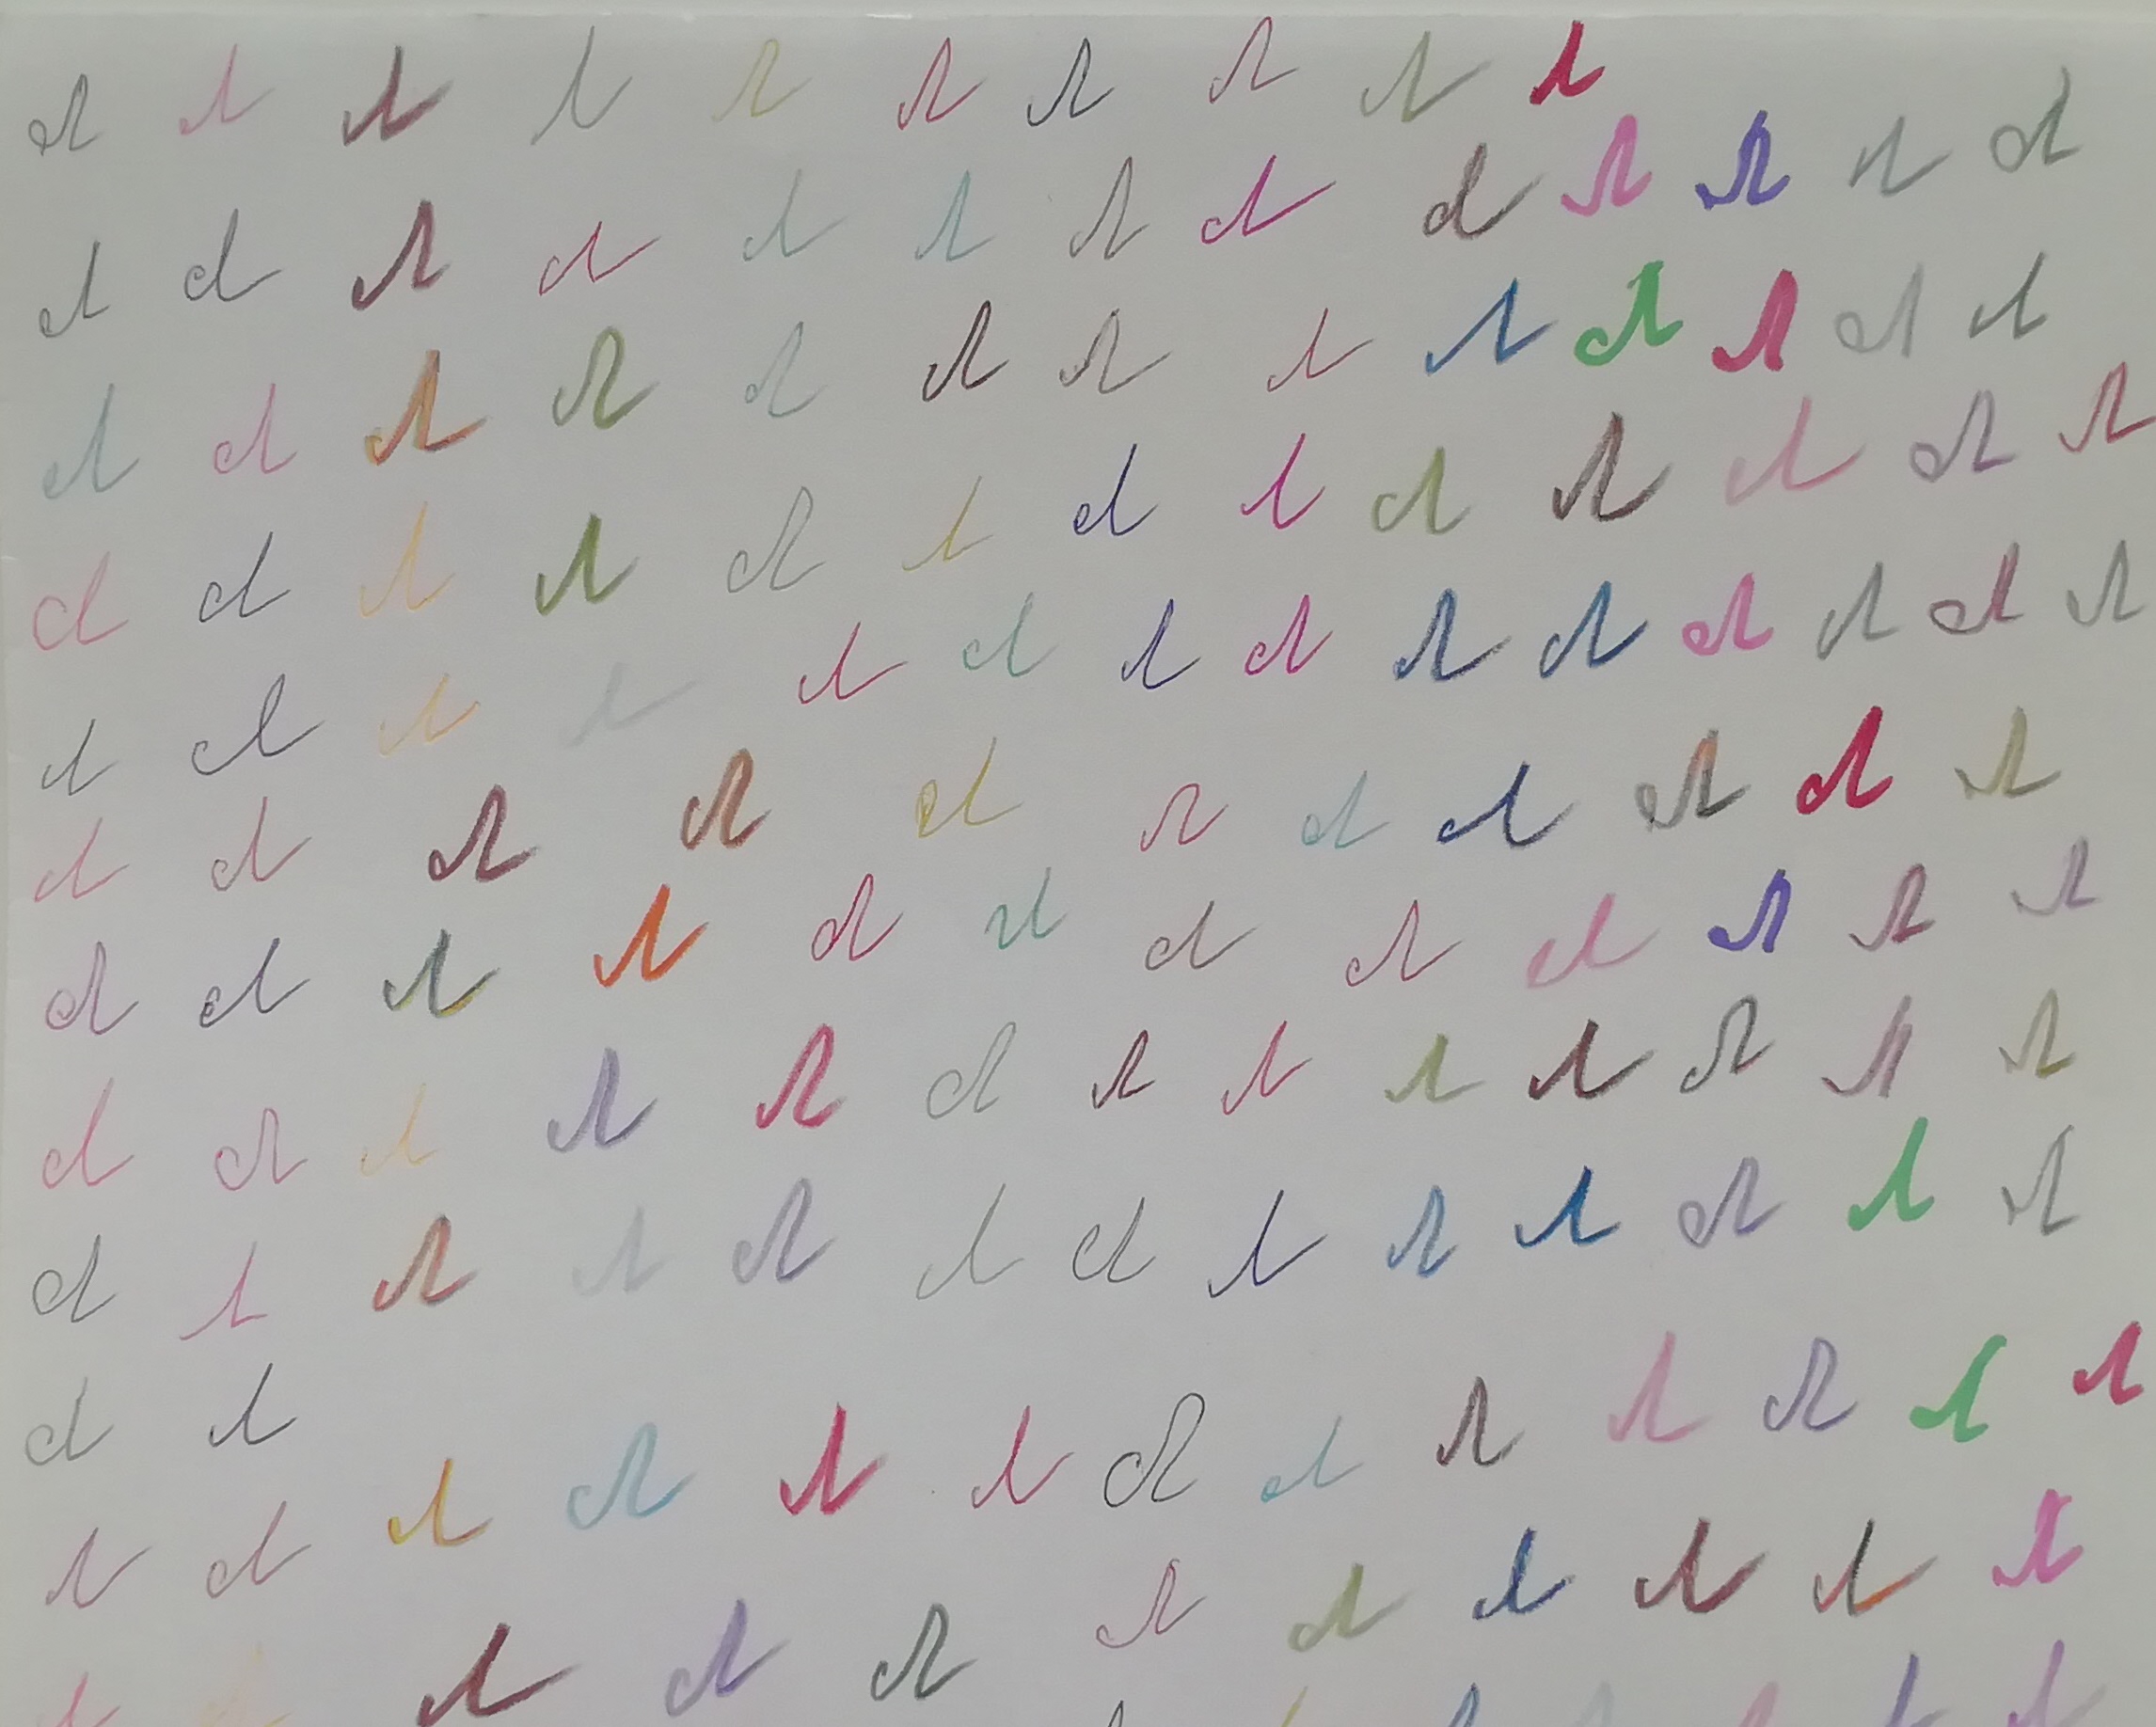 Л Л Л Л Л Л Л Л Л Л
Л Л Л Л Л Л Л Л Л Л Л Л Л
Л Л Л Л Л Л Л Л Л Л Л Л Л
Л Л Л Л Л Л Л Л Л Л Л Л Л
Л Л Л Л Л Л Л Л Л Л Л Л Л Л
Л Л Л Л Л Л Л Л Л Л Л
Л Л Л Л Л Л Л Л Л Л Л Л
Л Л Л Л Л Л Л Л Л Л Л Л Л
Л Л Л Л Л Л Л Л Л Л Л Л Л
Л Л
Л Л Л Л Л Л Л Л Л Л Л Л Л
Л Л Л Л Л Л Л Л Л